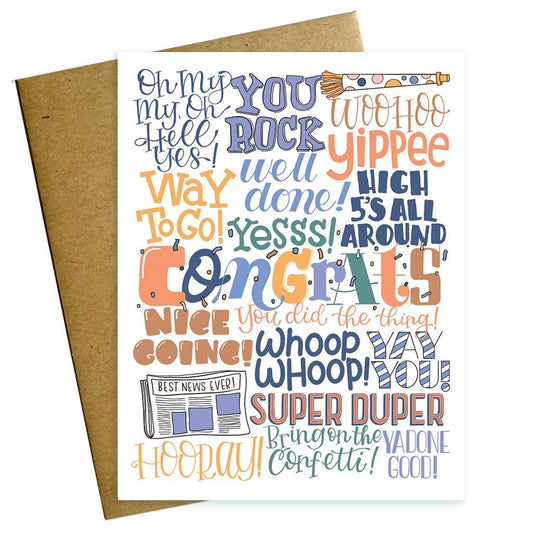 Oh My
My, Oh
Hell
Yes!
YOU
ROCK
WOOHOO
yippee
WAY
TO GO!
well
done!
HIGH
5'S ALL
AROUND
Yesss!
CONGRATS
You did the thing!
NICE
GOING!
WHOOP
WHOOP!
YAY
YOU!
BEST NEWS EVER!
SUPER DUPER
HOORAY!
Bring on the
Confetti!
YA DONE
GOOD!